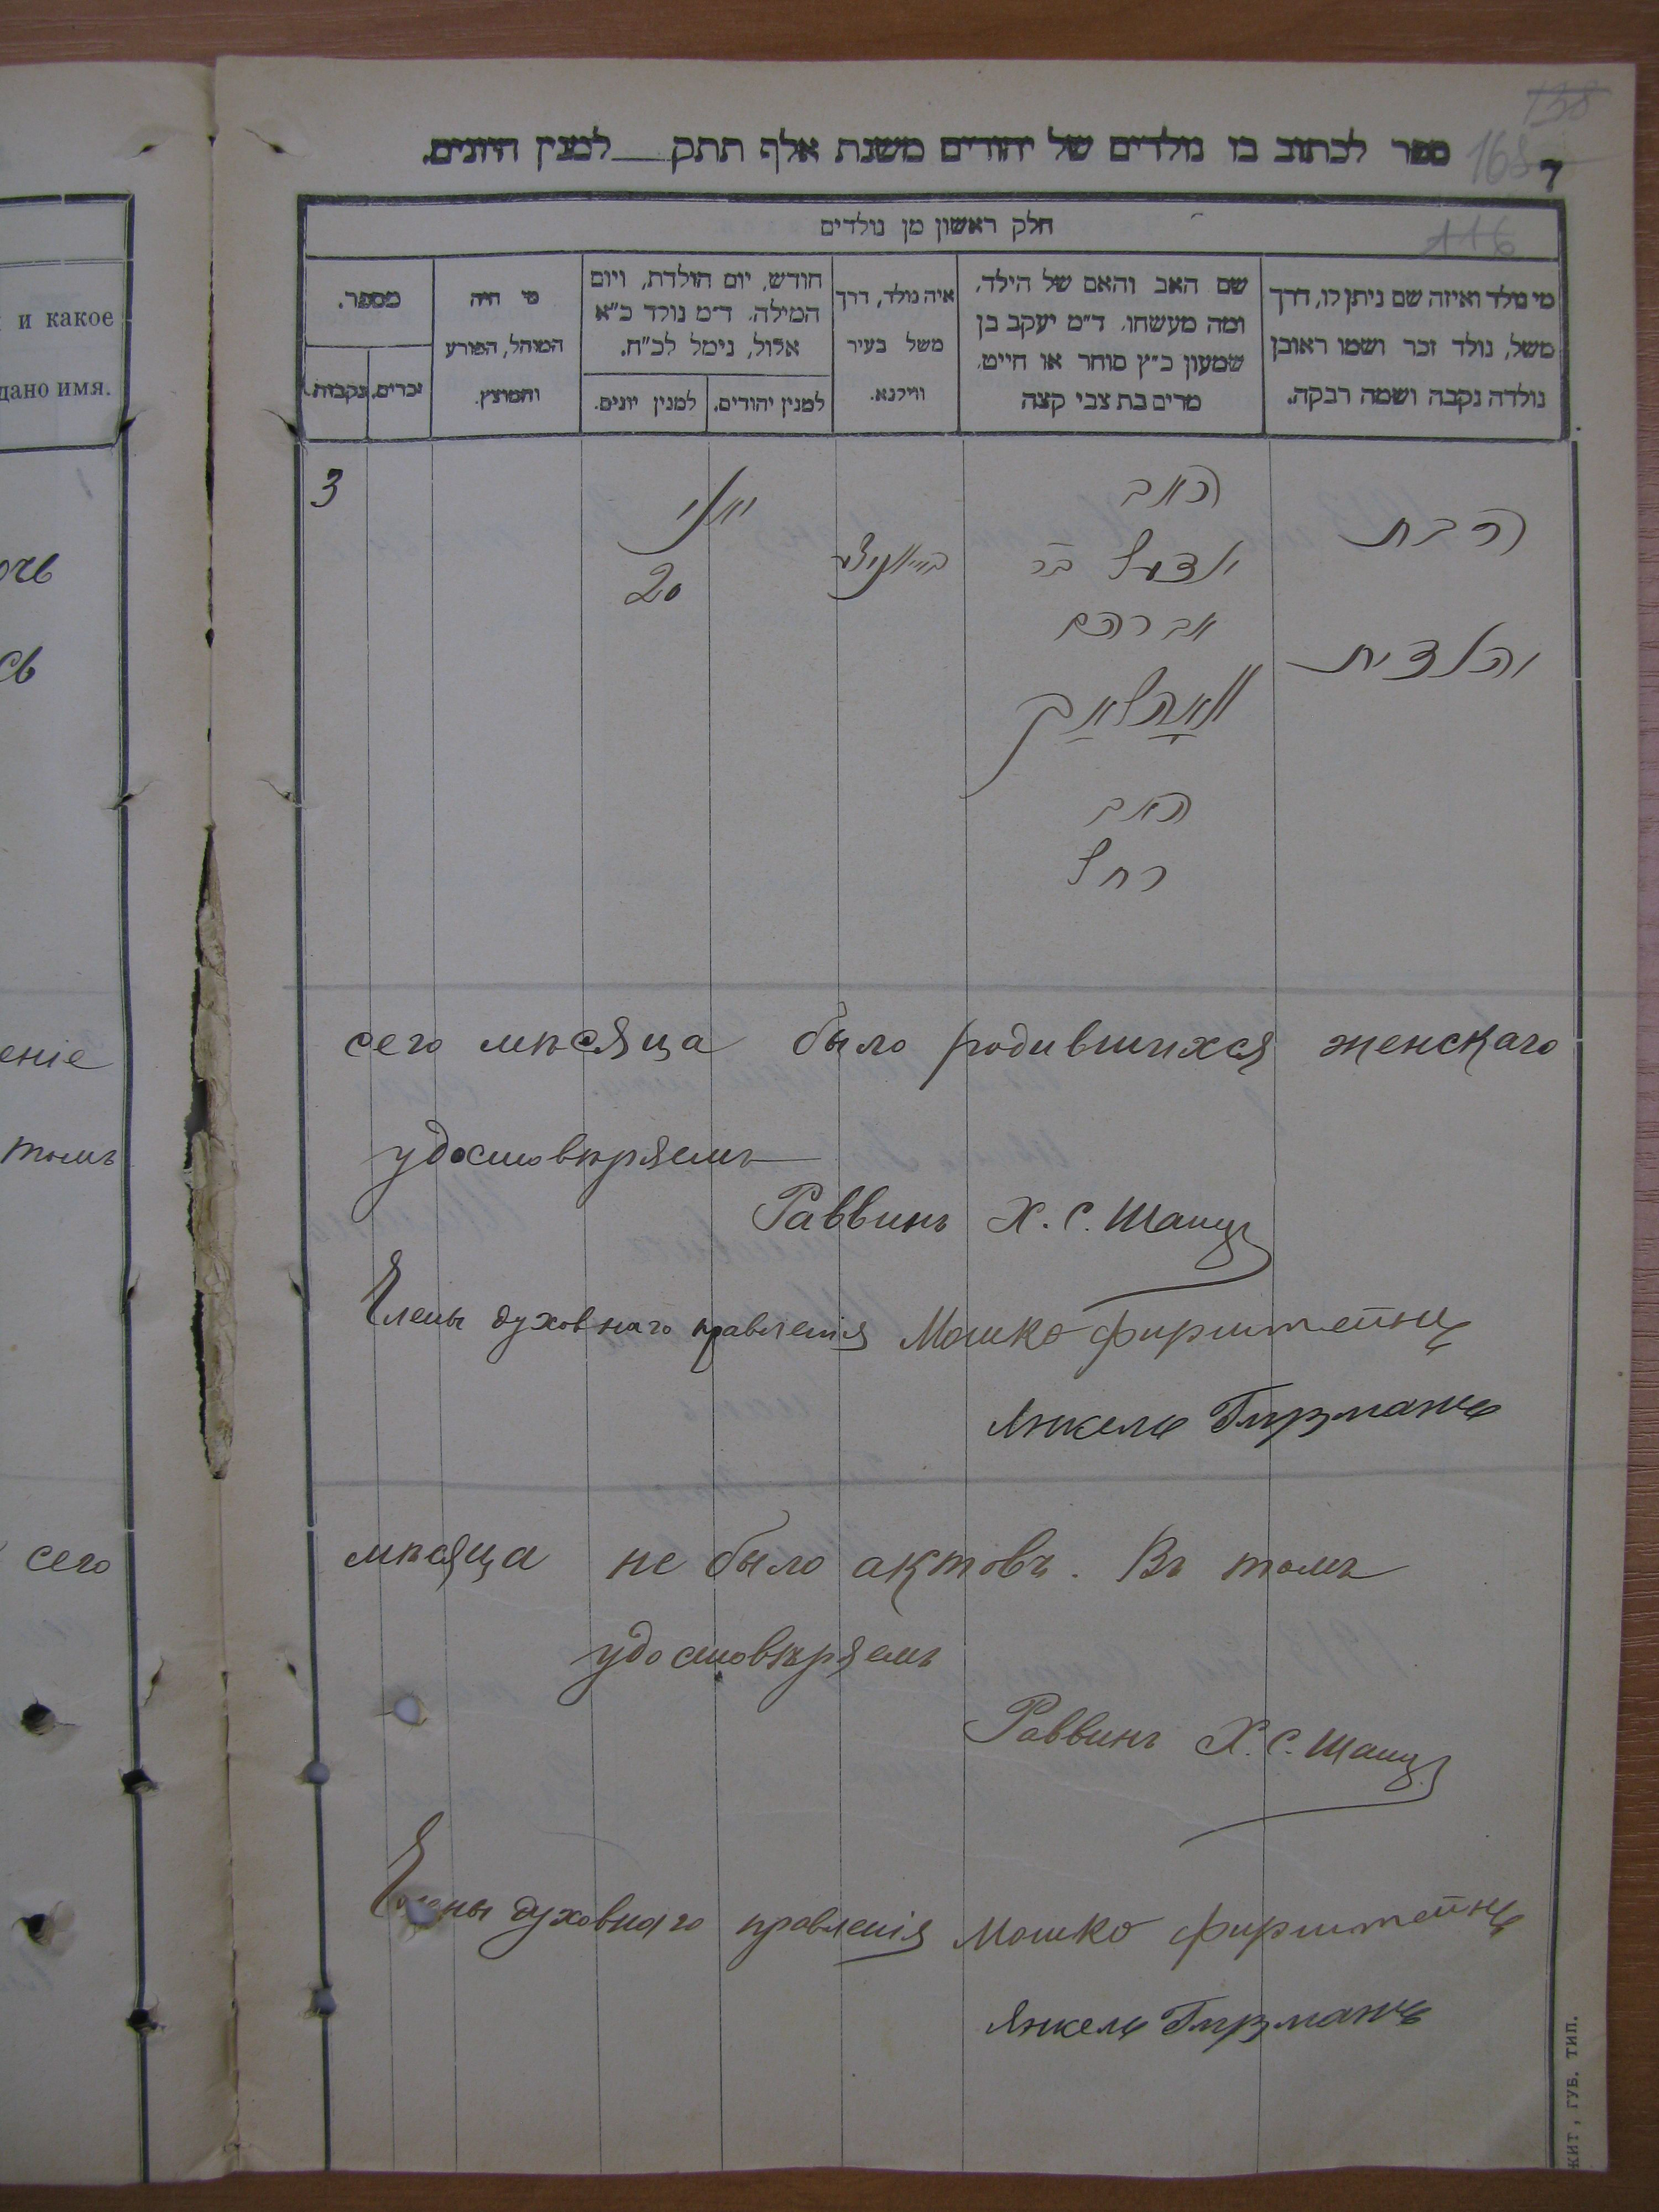 138
168
ספר לכתוב בו נולדים של יהודים משנת אלף תתק__למנין היונים.
ד
116
חלק ראשון מן נולדים
מי נולד ואיזה שם ניתן לו, דרך
משל, נולד זכר ושמו ראובן
נולדה נקבה ושמה רבקה.
שם האב והאם של הילד,
ומה מעשהו, ד״מ יעקב בן
שמעון כ״ץ סוחר או חייט,
מרים בת צבי קצה
איה נולד, דרך
משל בעיר
ווילנא.
חודש, יום הולדת, ויום
המילה. ד״מ נולד כ״א
אלול, נימל לכ״ח.
למנין יהודים.
למנין יונים.
מי היה
המוהל, הפורע
והמוצץ.
מספר.
זכרים.
נקבות.
הבת
האב
יולי
3
בר
20
אברהם
האב
רחל
и какое
дано имя.
очь
сь
еніе
томъ
сего
сего мѣсяца было родившихся женскаго
удостовѣряемъ
Раввинъ Х. С.
Члены духовнаго правленія Мошко Фирштейнъ
Янкель
мѣсяца не было актовъ. Въ томъ
удостовѣряемъ
Раввинъ Х. С.
Члены духовнаго правленія Мошко Фирштейнъ
Янкель
ЖИТ, ГУБ. ТИП.